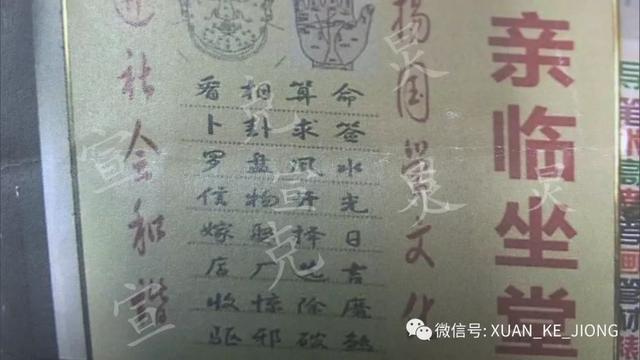 亲临坐堂
扬国文化
看相算命
卜卦求签
罗盘风水
信物开光
嫁娶择日
店厂吉
收惊除魔
驱邪破煞
进社会和諧
宣克炅
微信号: XUAN_KE_JIONG